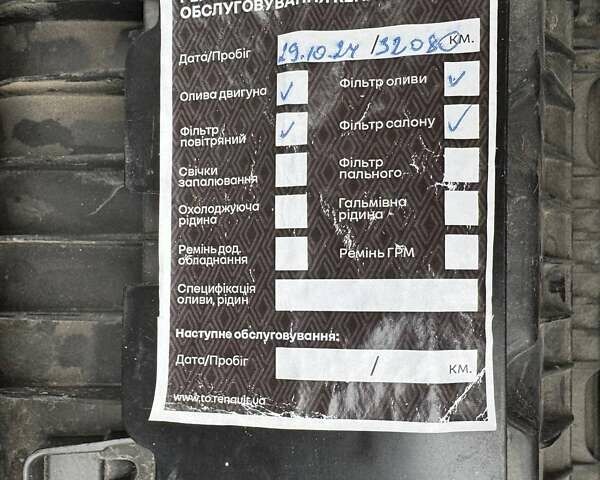 ОБСЛУГОВУВАННЯ
Дата/Пробіг 29.10.24 /32080 км.
Олива двигуна ✓ Фільтр оливи ✓
Фільтр
повітряний ✓ Фільтр салону ✓
Свічки
запалювання
Фільтр
пального
Охолоджуюча
рідина
Гальмівна
рідина
Ремінь дод.
обладнання
Ремінь ГРМ
Специфікація
оливи, рідин
Наступне обслуговування:
Дата/Пробіг / км.
www.to.renault.ua